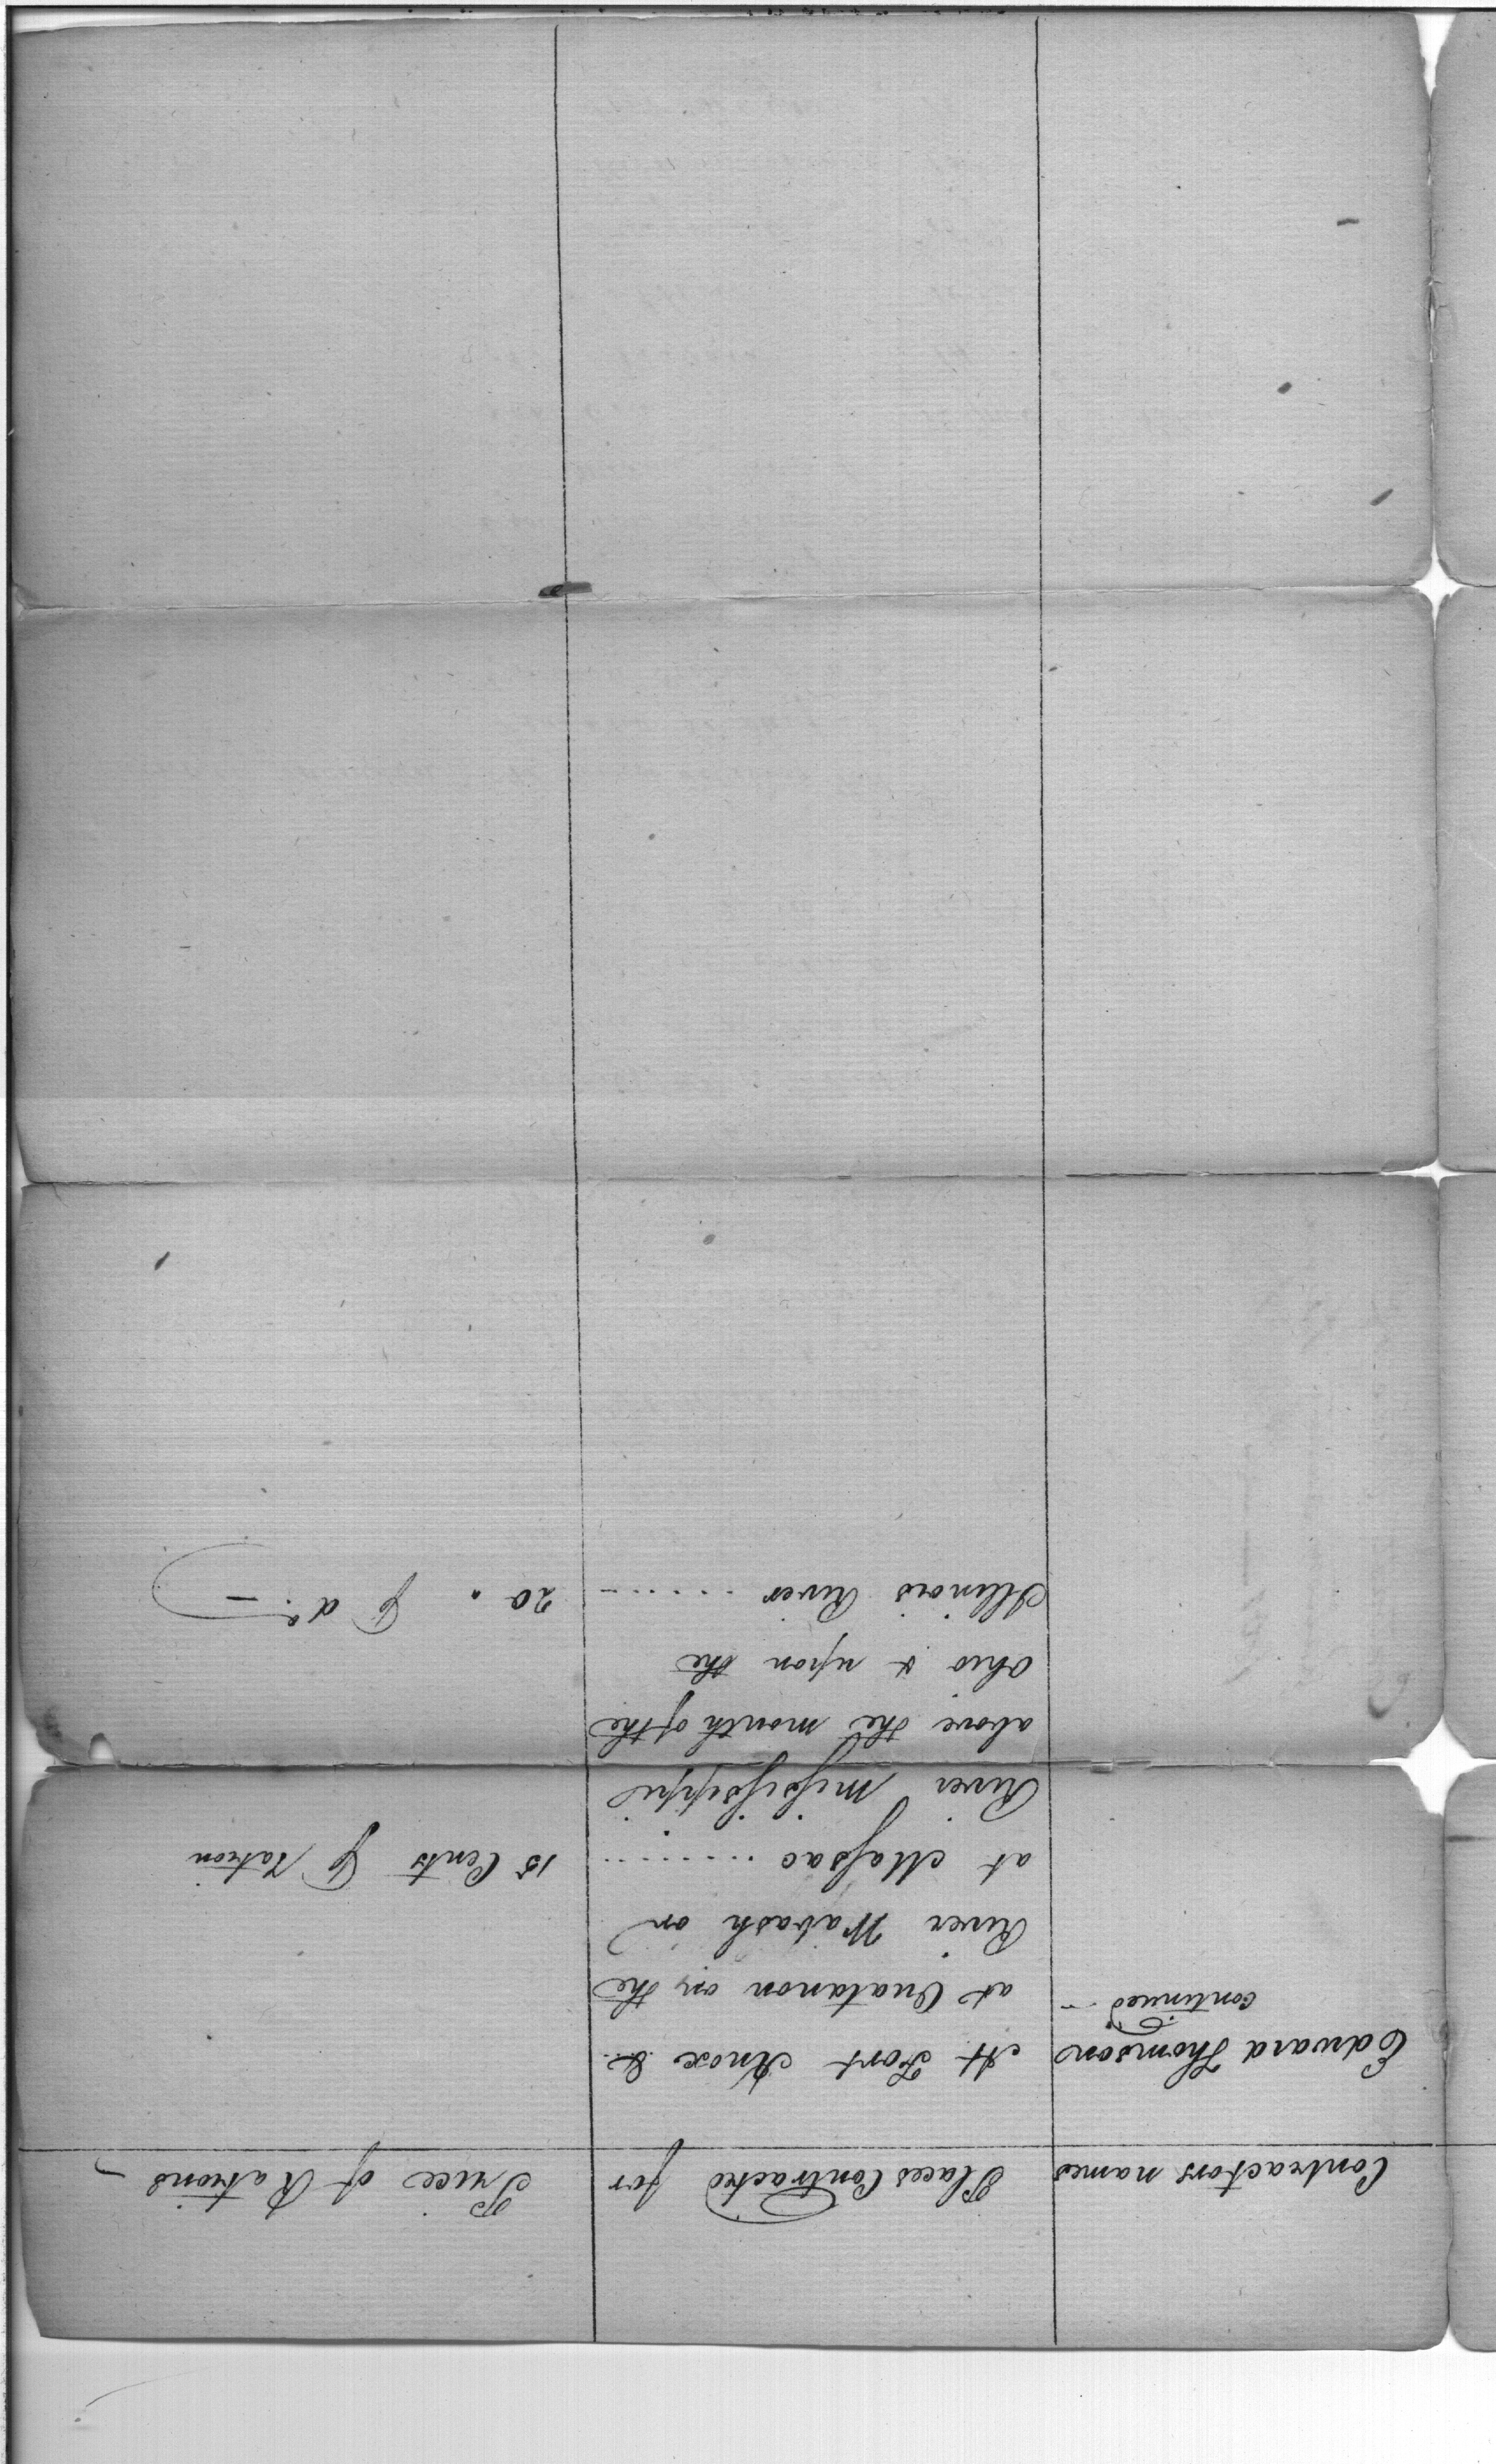 Contractors names | Places Contracted for | Price of Rations
Edward Thomson | At Fort Knox &
continued | at Ouatanon on the
River Wabash or
at Massac ........ | 15 Cents ⅌ ration
River Missisippi
above the mouth of the
Ohio & upon the
Illinois River ...... | 20 " ⅌ do. —